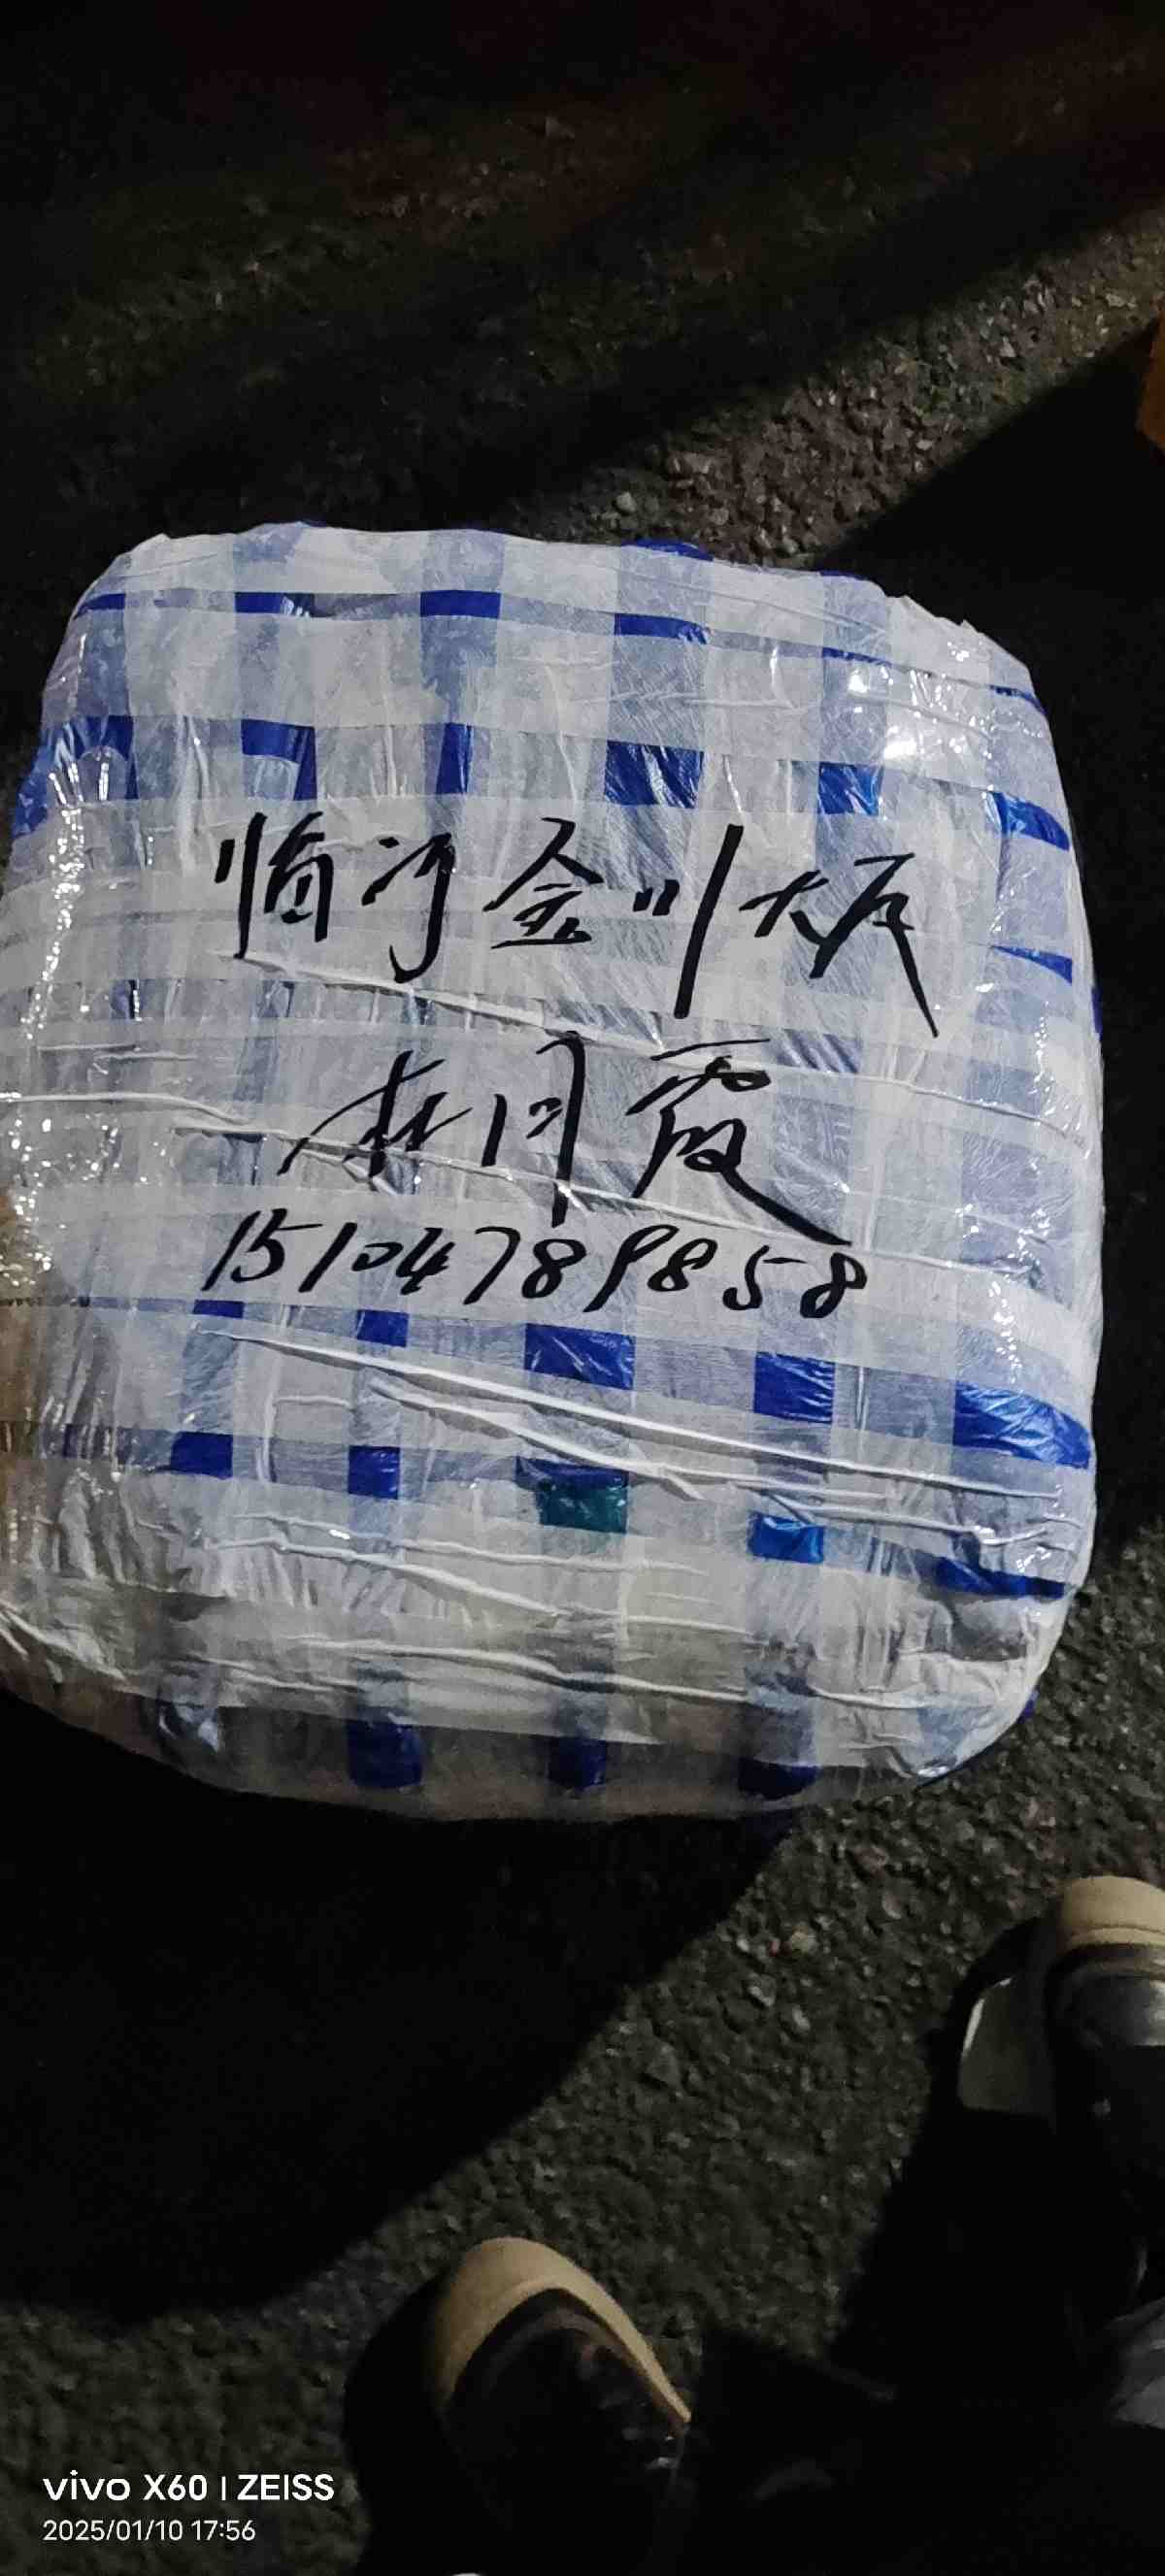 临河金川大厦
杜月霞
15104789858
vivo X60 | ZEISS
2025/01/10 17:56